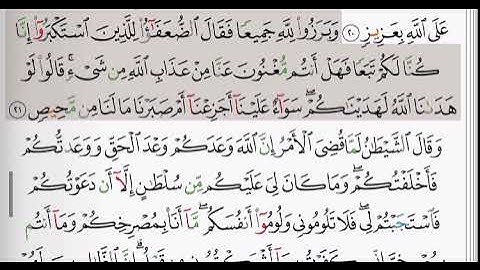 عَلَى ٱللَّهِ بِعَزِيزٍ ٢٠ وَبَرَزُوا۟ لِلَّهِ جَمِيعًا فَقَالَ ٱلضُّعَفَـٰٓؤُا۟ لِلَّذِينَ ٱسْتَكْبَرُوٓا۟ إِنَّا
كُنَّا لَكُمْ تَبَعًا فَهَلْ أَنتُم مُّغْنُونَ عَنَّا مِنْ عَذَابِ ٱللَّهِ مِن شَىْءٍ ۚ قَالُوا۟ لَوْ
هَدَىٰنَا ٱللَّهُ لَهَدَيْنَـٰكُمْ ۖ سَوَآءٌ عَلَيْنَآ أَجَزِعْنَآ أَمْ صَبَرْنَا مَا لَنَا مِن مَّحِيصٍ ٢١
وَقَالَ ٱلشَّيْطَـٰنُ لَمَّا قُضِىَ ٱلْأَمْرُ إِنَّ ٱللَّهَ وَعَدَكُمْ وَعْدَ ٱلْحَقِّ وَوَعَدتُّكُمْ
فَأَخْلَفْتُكُمْ ۖ وَمَا كَانَ لِىَ عَلَيْكُم مِّن سُلْطَـٰنٍ إِلَّآ أَن دَعَوْتُكُمْ
فَٱسْتَجَبْتُمْ لِى ۖ فَلَا تَلُومُونِى وَلُومُوٓا۟ أَنفُسَكُم ۖ مَّآ أَنَا۠ بِمُصْرِخِكُمْ وَمَآ أَنتُم